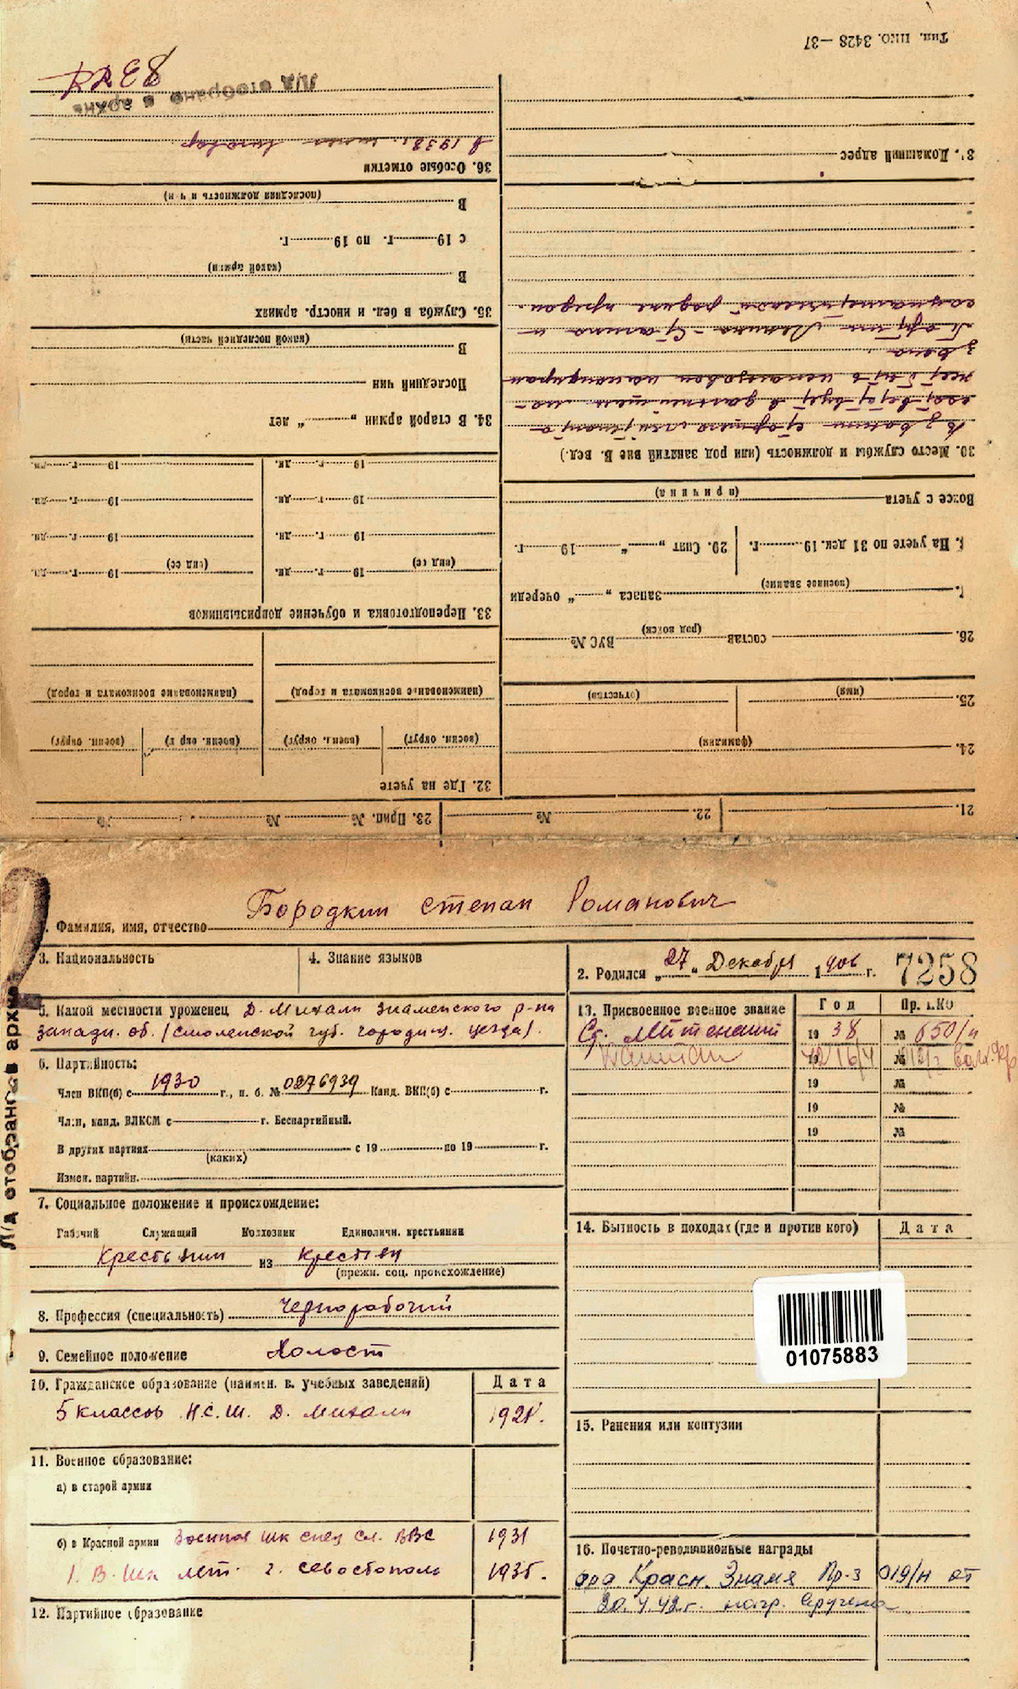 Тип. НКО. 3428—37
21.
22. №
23. Прип. № № №
24.
(фамилия)
25.
(имя) (отчество)
26. состав ВУС №
(род войск)
запаса „ “ очереди
(военное звание)
На учете по 31 дек. 19 г. 29. Снят „ “ 19 г.
Вовсе с учета
(причина)
30. Место службы и должность (или род занятий вне В. вед.)
Домашний адрес
32. Где на учете
(военн. округ) (воен. округ) (военн. округ) (военн. округ)
(наименование военкомата и город) (наименование военкомата и город)
33. Переподготовка и обучение допризывников
(вид сб) 19 г. дн. (вид сб) 19 г. дн.
19 г. дн. 19 г. дн.
19 г. дн. 19 г. дн.
19 г. дн. 19 г. дн.
34. В старой армии „ “ лет
Последний чин
В
(какой последней части)
35. Служба в бел. и иностр. армиях
В
(какой армии)
с 19 г. по 19 г.
В
(последняя должность и чин)
36. Особые отметки
В 1938г.
Л/Д отобрано в архив
Фамилия, имя, отчество Бородкин Степан Романович
3. Национальность
4. Знание языков
2. Родился „27“ Декабря 1906 г.
7258
5. Какой местности уроженец Д. Михали Знаменского р-на
Западн. об. (Смоленской губ. городищ. уезда).
6. Партийность:
Член ВКП(б) с 1930 г., п. б. № 0276939 Канд. ВКП(б) с
Член, канд. ВЛКСМ с г. Беспартийный.
В других партиях с 19 по 19 г.
(каких)
Измен. партийн.
7. Социальное положение и происхождение:
Рабочий Служащий Колхозник Единоличн. крестьянин
Крестьянин из крестьян
(прежн. соц. происхождение)
8. Профессия (специальность) Чернорабочий
9. Семейное положение Холост
10. Гражданское образование (наимен. в. учебных заведений) Дата
5 классов Н.С.Ш. Д. Михали 1921.
11. Военное образование:
а) в старой армии
б) в Красной армии Военная шк спец сл. ВВС 1931
1. В. Шк лет. г. Севастополь 1935.
12. Партийное образование
13. Присвоенное военное звание Год Пр. НКО
Ст. Лейтенант 1938 № 050/п
Капитан
19 №
19 №
19 №
14. Бытность в походах (где и против кого) Дата
01075883
15. Ранения или контузии
16. Почетно-революционные награды
орд Красн. Знамя Пр-з 019/н от
20.4.42г. нагр. вручена
Л/Д отобрано в архив